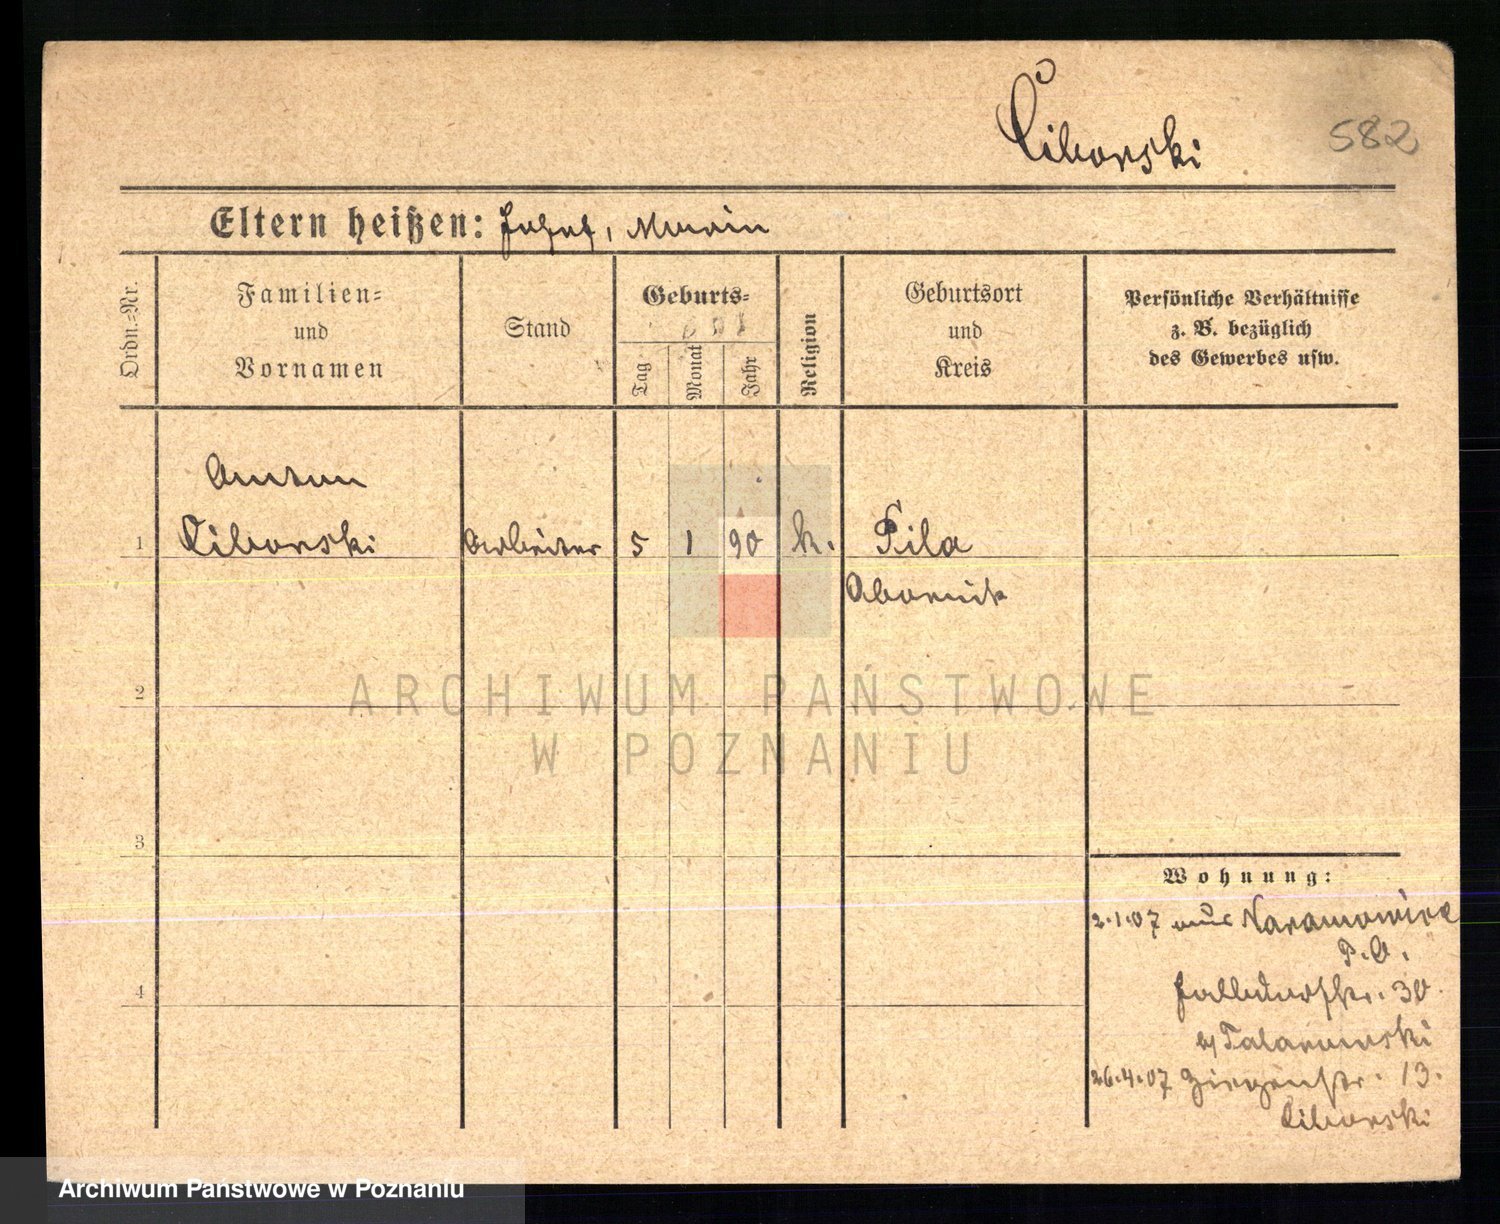 Ciborski
582
Eltern heißen: Josef, Maria
Ordn.-Nr.
Familien-
und
Vornamen
Stand
Geburts-
Tag
Monat
Jahr
Religion
Geburtsort
und
Kreis
Persönliche Verhältnisse
z. B. bezüglich
des Gewerbes usw.
Anton
1 Ciborski Arbeiter 5 1 90 k. Pila
Obornik
2
3
4
Wohnung:
2.1.07 aus Naramowice
P.O.
str. 30.
b/
26.4.07 str. 13.
Ciborski
ARCHIWUM PAŃSTWOWE
W POZNANIU
Archiwum Państwowe w Poznaniu